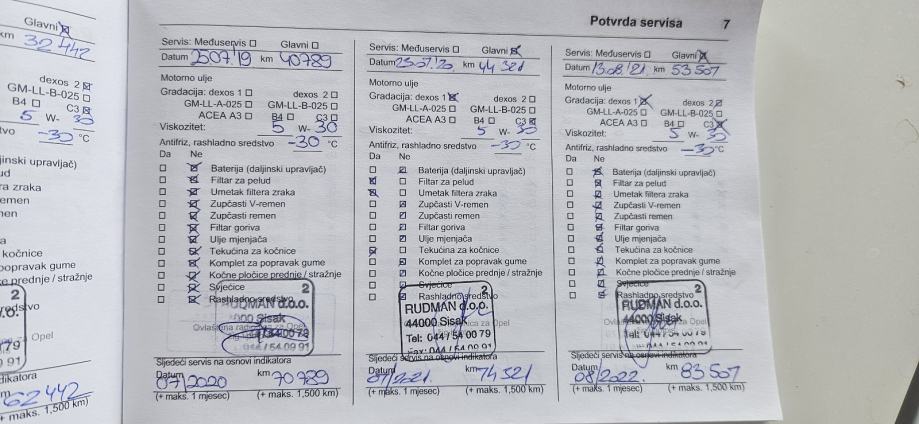 Glavni
km 32 442
dexos 2
GM-LL-B-025
B4 C3
5 W- 30
-30 °C
(daljinski upravljač)
zraka
kočnice
popravak gume
prednje / stražnje
2
Opel
62442
+ maks. 1,500 km)
Potvrda servisa 7
Servis: Međuservis Glavni
Datum 25 07. '19 km 40789
Motorno ulje
Gradacija: dexos 1 dexos 2
GM-LL-A-025 GM-LL-B-025
ACEA A3 B4 C3
Viskozitet: 5 W- 30
Antifriz, rashladno sredstvo -30 °C
Da Ne
Baterija (daljinski upravljač)
Filtar za pelud
Umetak filtera zraka
Zupčasti V-remen
Zupčasti remen
Filtar goriva
Ulje mjenjača
Tekućina za kočnice
Komplet za popravak gume
Kočne pločice prednje / stražnje
Svjećice
Rashladno sredstvo
2
RUDMAN d.o.o.
Sisak
Sljedeći servis na osnovi indikatora
Datum 07/2020 km 70789
(+ maks. 1 mjesec) (+ maks. 1,500 km)
Servis: Međuservis Glavni
Datum 23.07.'20. km 44 321
Motorno ulje
Gradacija: dexos 1 dexos 2
GM-LL-A-025 GM-LL-B-025
ACEA A3 B4 C3
Viskozitet: 5 W- 30
Antifriz, rashladno sredstvo -30 °C
Da Ne
Baterija (daljinski upravljač)
Filtar za pelud
Umetak filtera zraka
Zupčasti V-remen
Zupčasti remen
Filtar goriva
Ulje mjenjača
Tekućina za kočnice
Komplet za popravak gume
Kočne pločice prednje / stražnje
Svjećice
Rashladno sredstvo
2
RUDMAN d.o.o.
44000 Sisak
Tel: 044 / 54 00 79
Fax: 044 / 54 09 91
Sljedeći servis na osnovi indikatora
Datum 07/2021. km 74 321
(+ maks. 1 mjesec) (+ maks. 1,500 km)
Servis: Međuservis Glavni
Datum 13.08.'21. km 53 507
Motorno ulje
Gradacija: dexos 1 dexos 2
GM-LL-A-025 GM-LL-B-025
ACEA A3 B4 C3
Viskozitet: 5 W- 30
Antifriz, rashladno sredstvo -30 °C
Da Ne
Baterija (daljinski upravljač)
Filtar za pelud
Umetak filtera zraka
Zupčasti V-remen
Zupčasti remen
Filtar goriva
Ulje mjenjača
Tekućina za kočnice
Komplet za popravak gume
Kočne pločice prednje / stražnje
Svjećice
Rashladno sredstvo
2
RUDMAN d.o.o.
44000 Sisak
Sljedeći servis na osnovi indikatora
Datum 08/2022. km 83 507
(+ maks. 1 mjesec) (+ maks. 1,500 km)